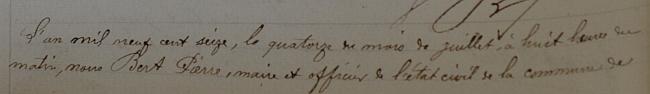 L'an mil neuf cent seize, le quatorze du mois de juillet, à huit heures du
matin, nous Bert Pierre, maire et officier de l'état civil de la commune de